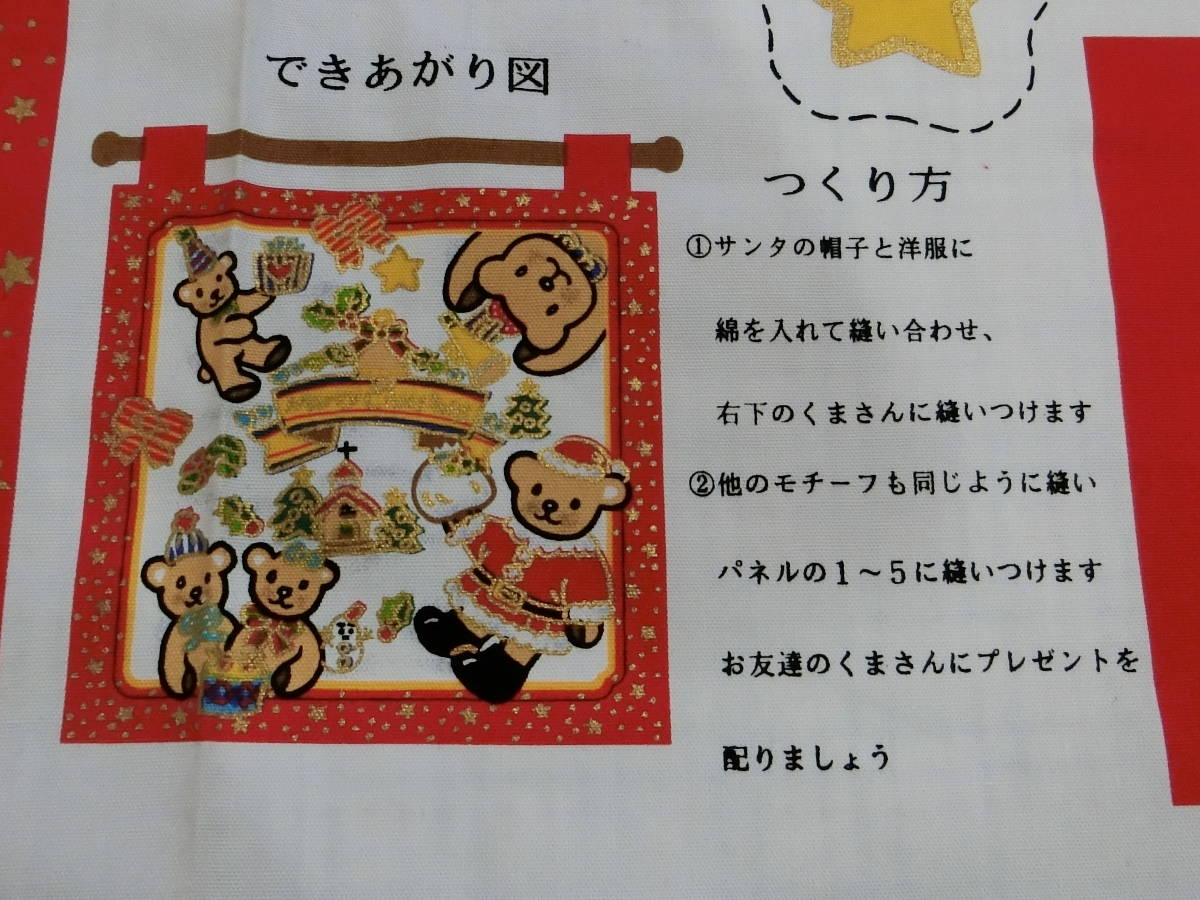 できあがり図
つくり方
①サンタの帽子と洋服に
綿を入れて縫い合わせ、
右下のくまさんに縫いつけます
②他のモチーフも同じように縫い
パネルの1～5に縫いつけます
お友達のくまさんにプレゼントを
配りましょう